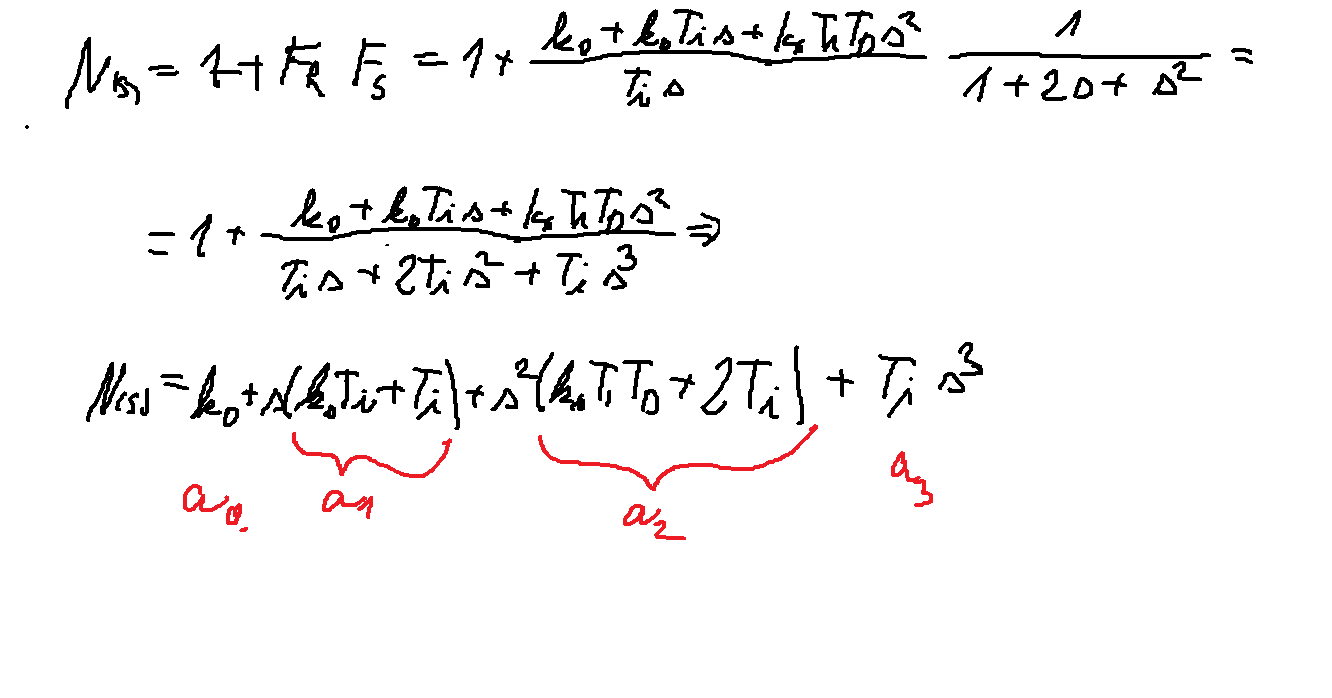 N(s) = 1 + F_R F_S = 1 + \frac{k_0 + k_0 T_i s + k_0 T_i T_D s^2}{T_i s} \frac{1}{1 + 2s + s^2} =
= 1 + \frac{k_0 + k_0 T_i s + k_0 T_i T_D s^2}{T_i s + 2T_i s^2 + T_i s^3} ⇒
N(s) = k_0 + s(k_0 T_i + T_i) + s^2(k_0 T_i T_D + 2T_i) + T_i s^3
a_0 a_1 a_2 a_3